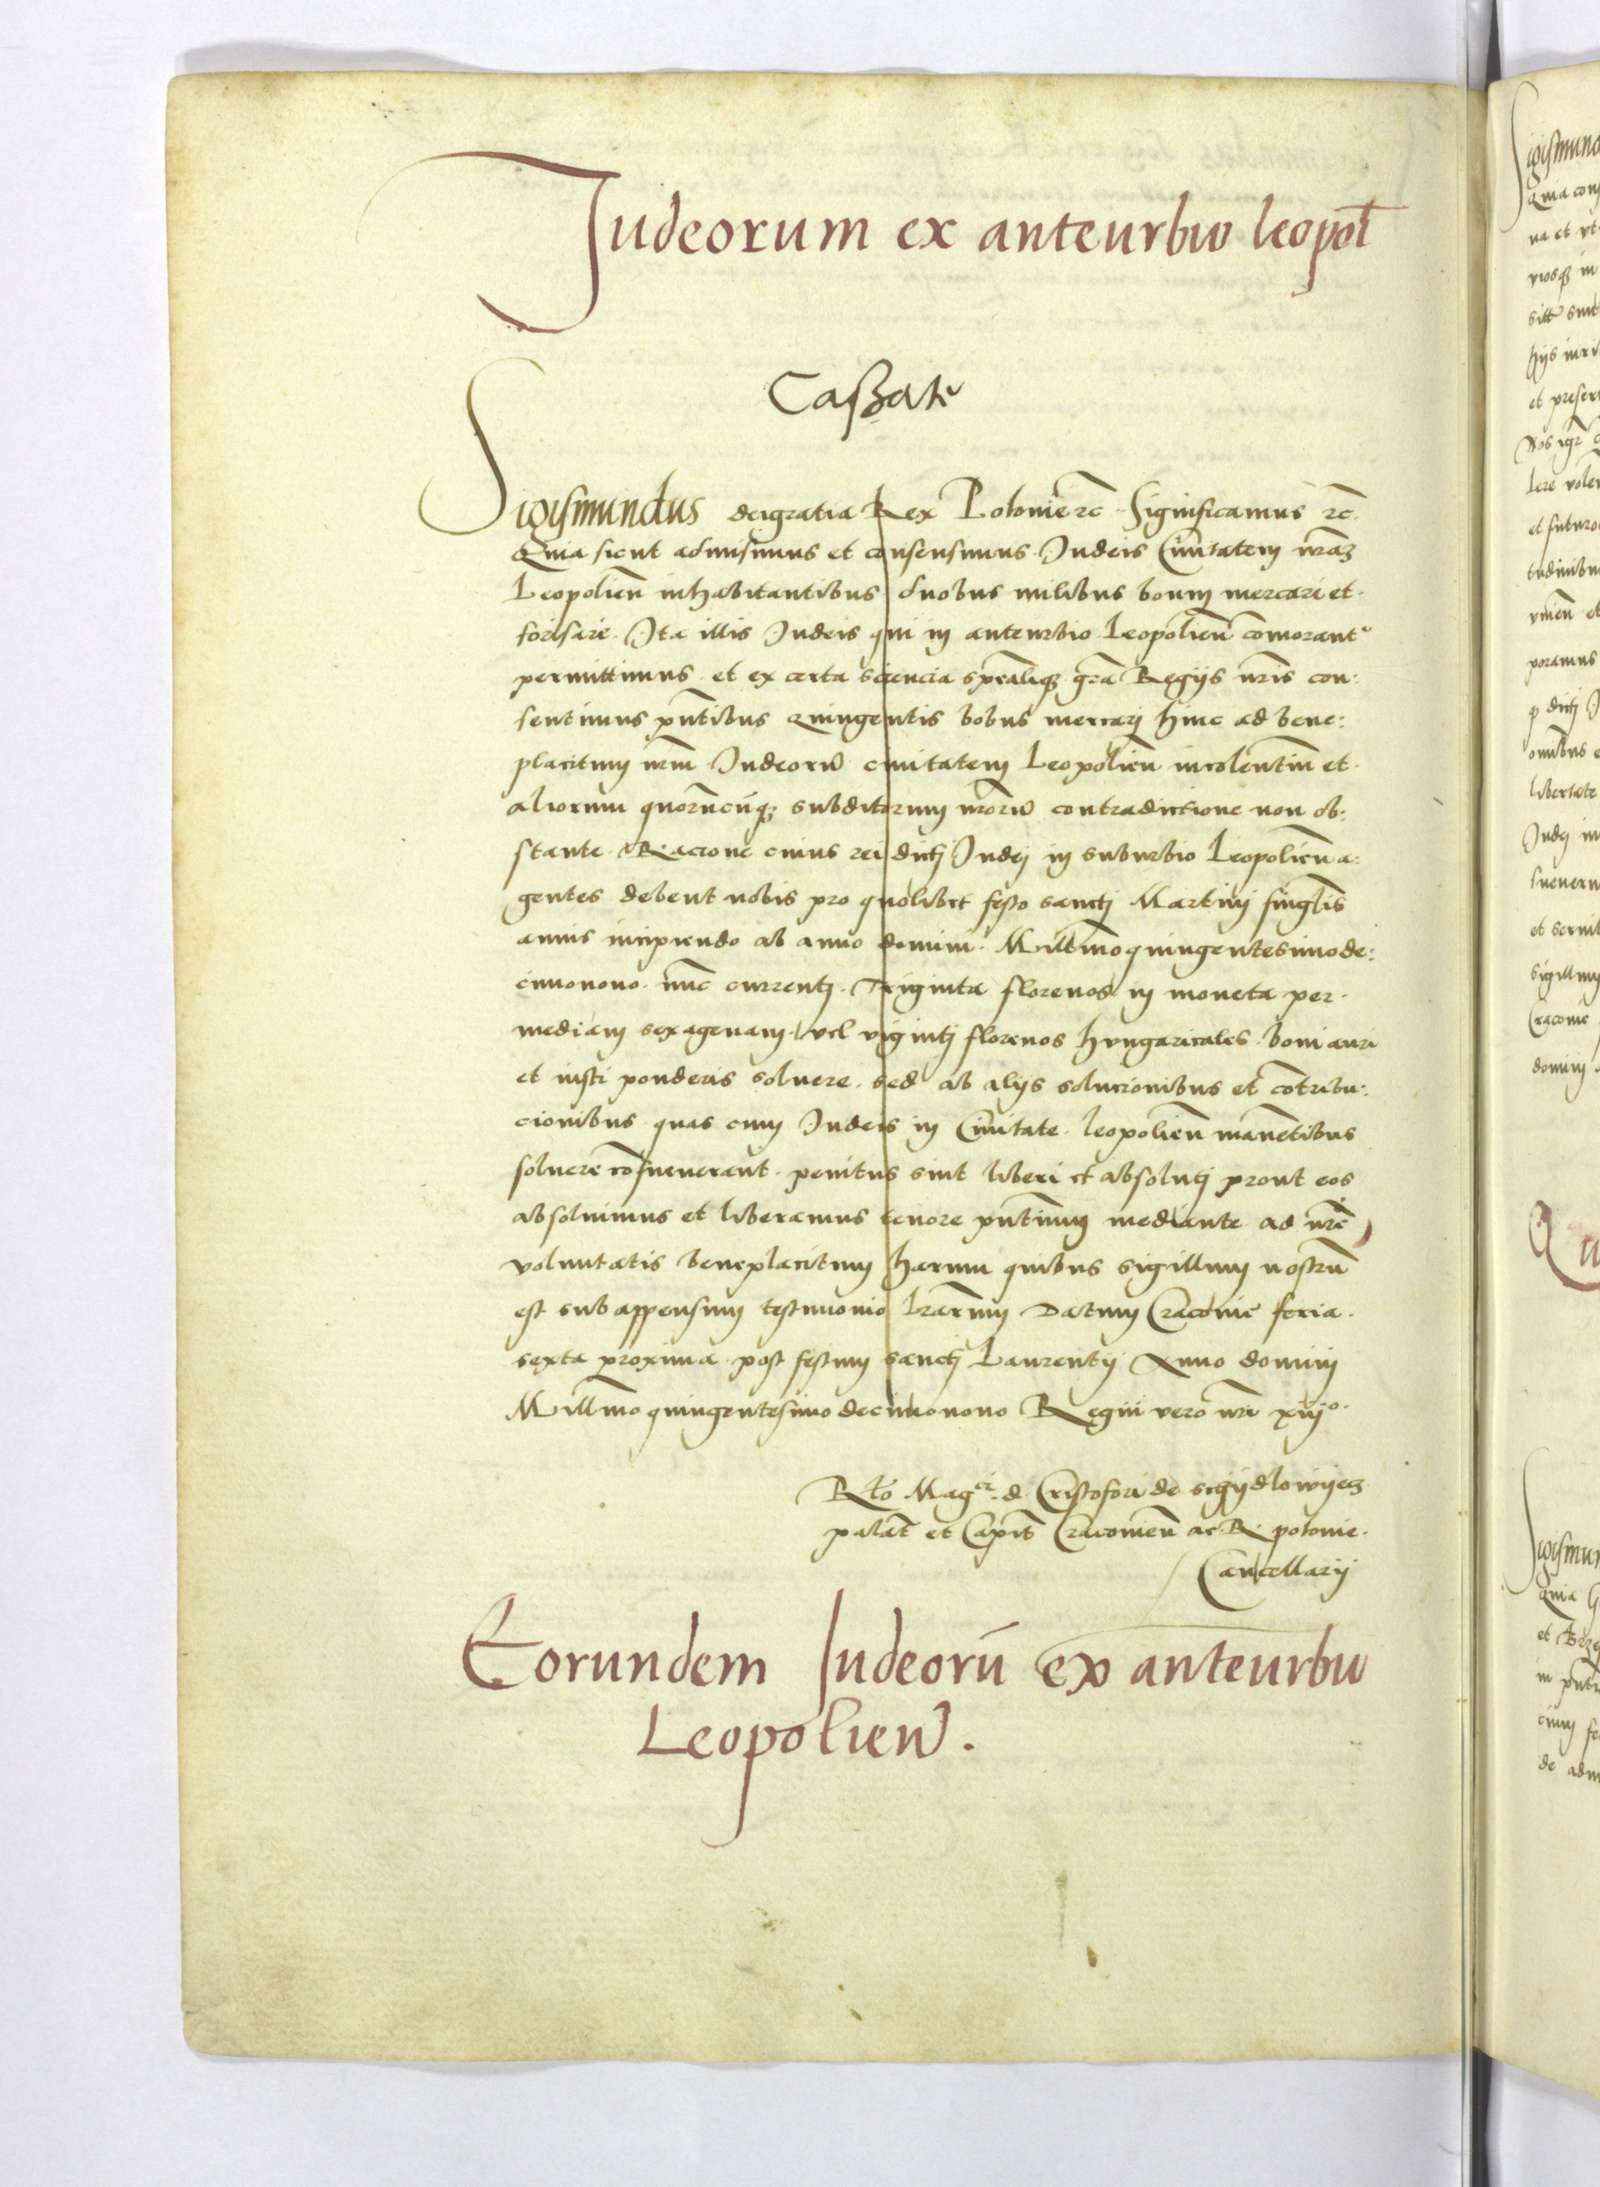 Judeorum ex anteurbio leopol
Cassate
Sigismundus dei gratia Rex Polonie rc Significamus rc.
Quia sicut admisimus et consensimus Judeis Civitatem nraz
Leopolien inhabitantibus duobus milibus boum mercari et
forisare. Ita illis Judeis qui in anteurbio Leopolien comorant
permittimus. et ex certa sciencia spealiq gra Regiis nris con:
sentimus pntibus Quingentis bobus mercari hinc ad bene:
placitum nrm Judeoru civitatem Leopolien incolentium et
aliorum quorucuq subditorum nroru contradictione non ob:
stante. Racione cuius rei dicti Judei in suburbio Leopolien a:
gentes debent nobis pro quolibet festo sancti Martini singlis
annis incipiendo ab anno domini. Millmo quingentesimo de:
cimonono. nuc currenti. Triginta florenos in moneta per
mediam sexagenam. vel viginti florenos hungaricales boni auri
et iusti ponderis solvere. sed ab aliis solucionibus et cotribu:
cionibus quas cum Judeis in Civitate leopolien manetibus
solvere cosueverant. penitus sint liberi et absoluti prout eos
absolvimus et liberamus tenore pntium mediante ad nre
voluntatis beneplacitum harum quibus sigillum nostru
est subappensum testimonio lrarum Datum Cracovie feria
sexta proxima post festum sancti Laurentii Anno domini
Millmo quingentesimo decimonono Regni vero nri xiijo.
Rto Magci d Cristofori de schydlowyecz
palat et Capit Cracovien ac R polonie
Cancellarii
Eorundem Judeoru ex anteurbio
Leopolien.